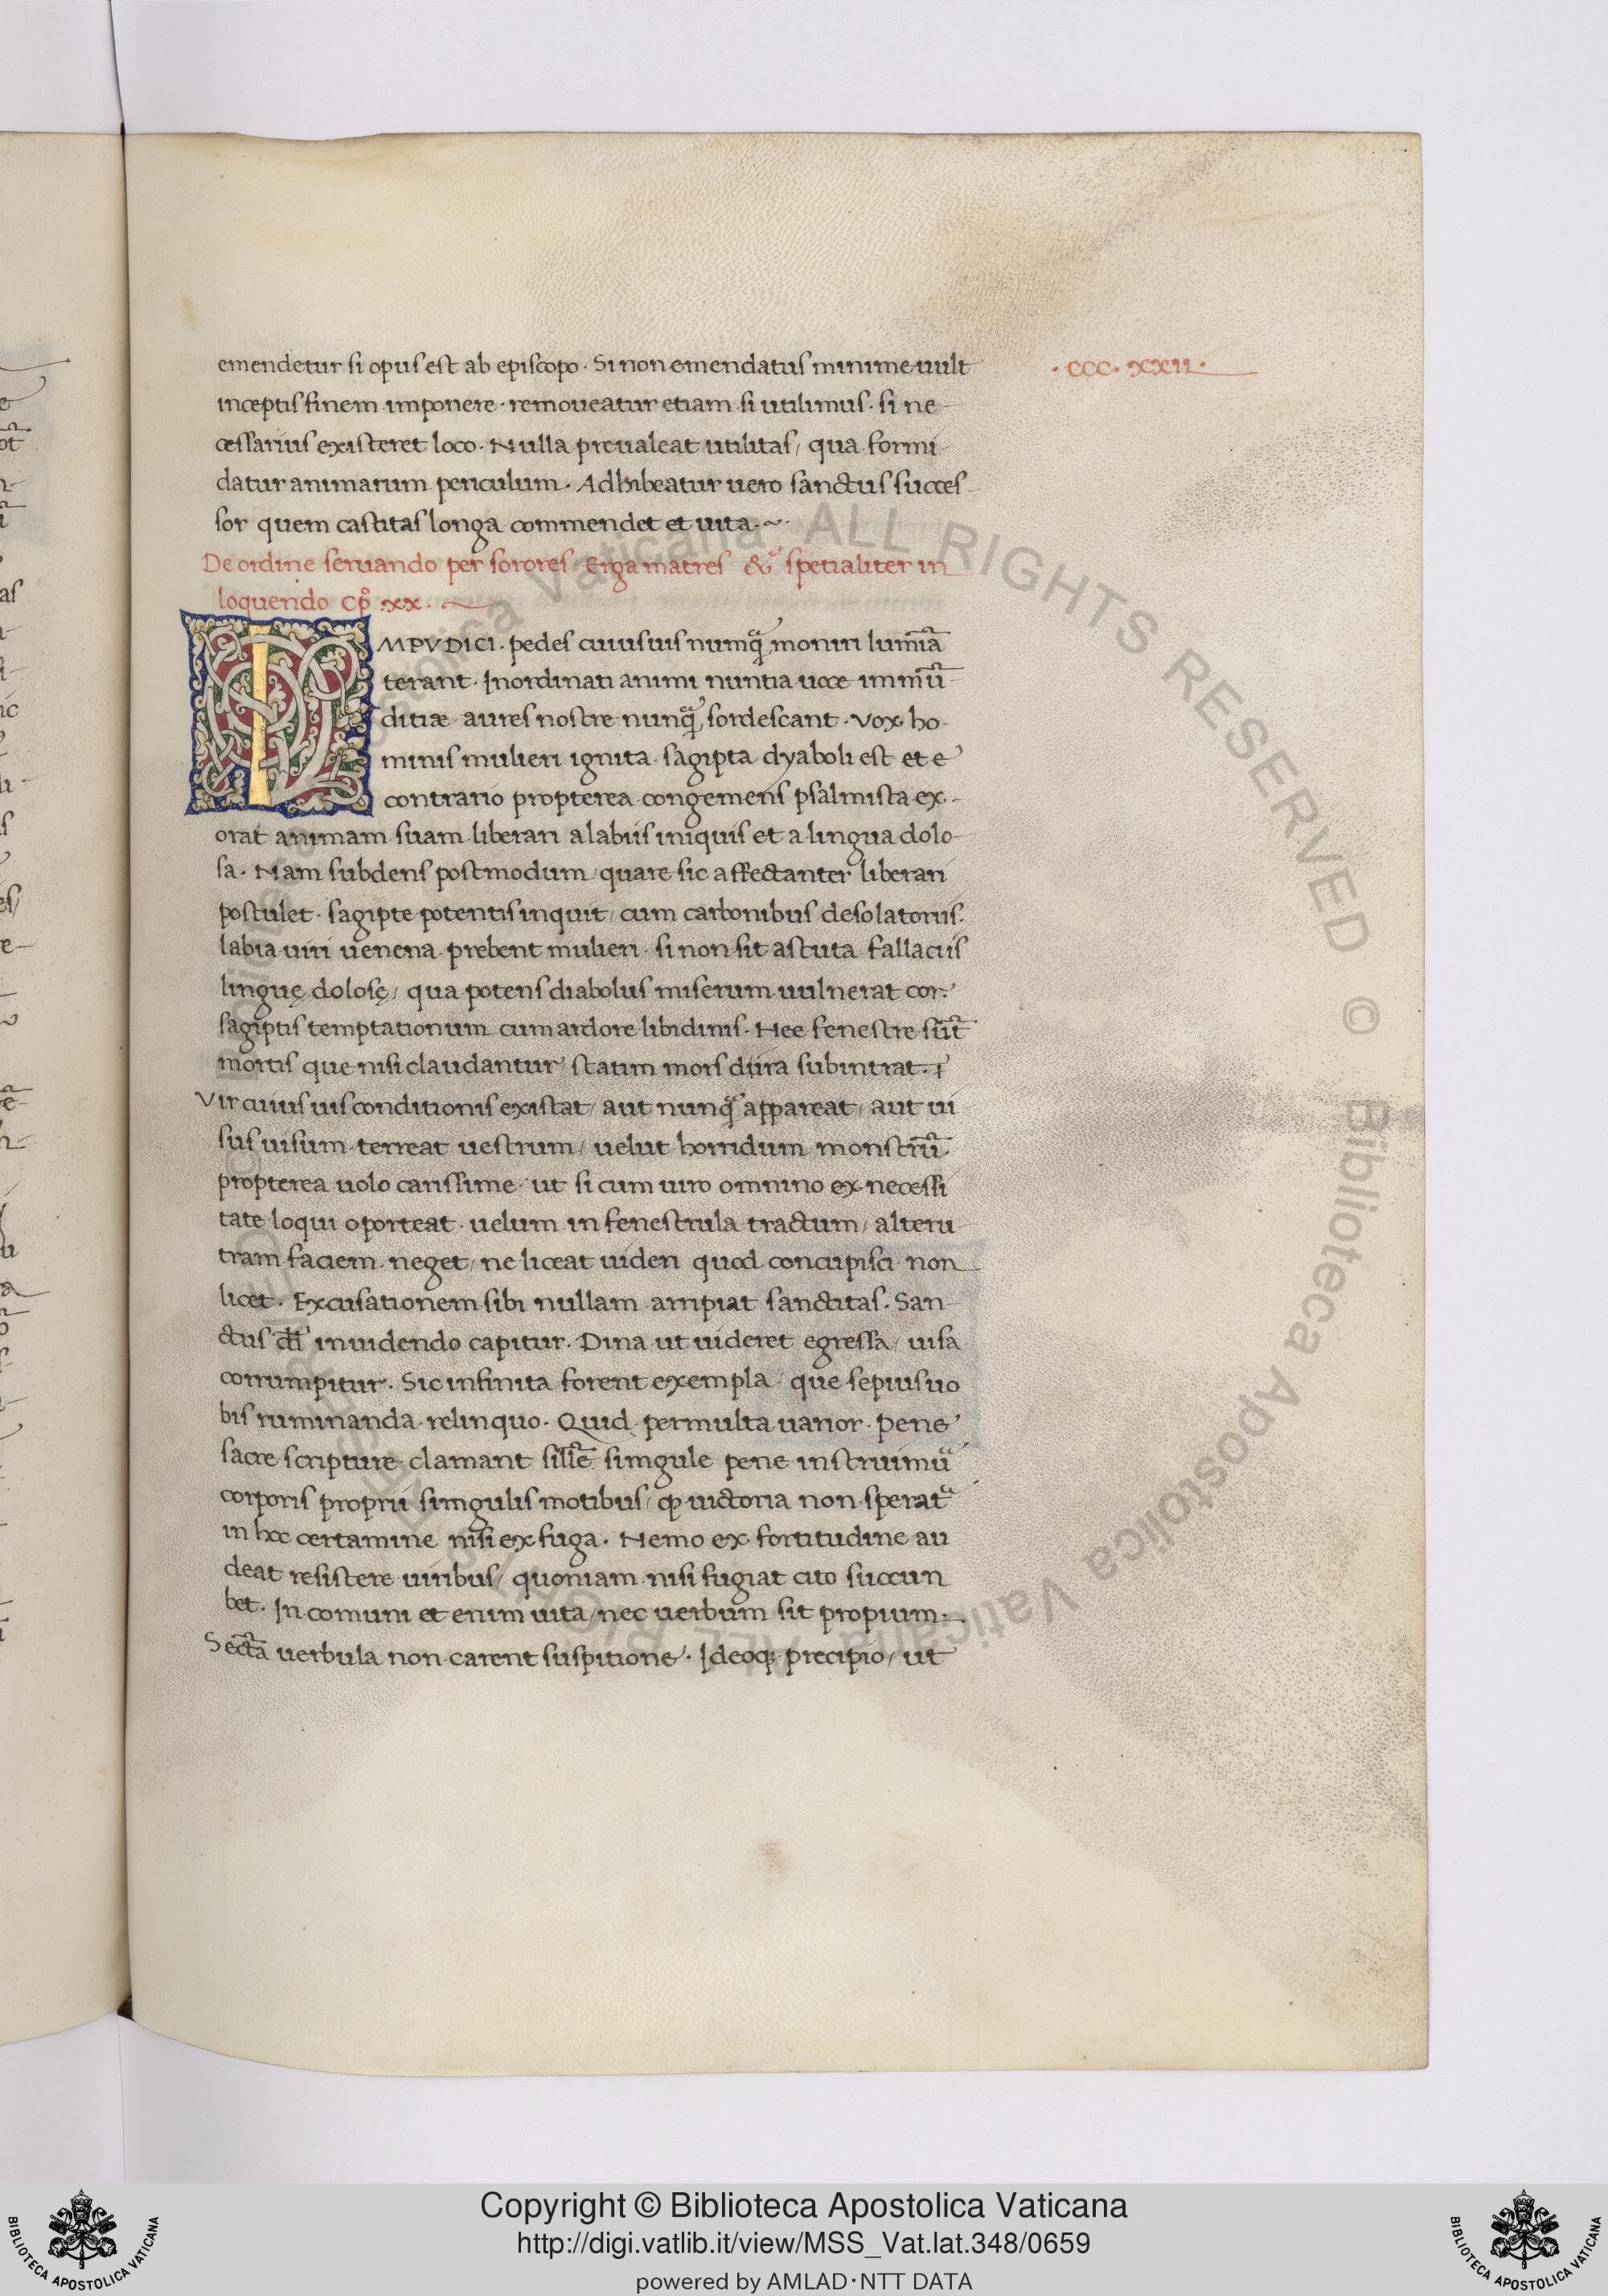 emendetur si opus est ab episcopo. Si non emendatus minime uult
·ccc·xxii·
inceptis finem imponere. remoueatur etiam si utilimus. si ne-
cessarius existeret loco. Nulla preualeat utilitas, qua formi
datur animarum periculum. Adhibeatur uero sanctus succes
sor quem castitas longa commendet et uita.~
De ordine seruando per sorores Erga matres & spetialiter in
loquendo Cp̊ .xx.
IMPVDICI. pedes cuiusuis numq̃ moniri lumīa
terant. Inordinati animi nuntia uoce immū-
ditiæ aures nostre nunq̃ sordescant. Vox ho-
minis mulieri ignita sagipta dyaboli est et e
contrario propterea congemens psalmista ex-
orat animam suam liberari a labiis iniquis et a lingua dolo-
sa. Nam subdens postmodum, quare sic affectanter liberari
postulet. sagipte potentis inquit, cum carbonibus desolatoriis.
labia uiri uenena prebent mulieri. si non sit astuta fallaciis
linguę dolosę, qua potens diabolus miserum uulnerat cor.
sagiptis temptationum cum ardore libidinis. Hee fenestre sūt
mortis que nisi claudantur, statim mors dura subintrat.
Vir cuiusuis conditionis existat, aut nunq̃ appareat, aut ui
sus uisum terreat uestrum, uelut horridum monstrū.
propterea uolo carissime. ut si cum uiro omnino ex necessi
tate loqui oporteat. uelum in fenestrula tractum, alteru
tram faciem neget, ne liceat uideri quod concupisci non
licet. Excusationem sibi nullam arripiat sanctitas. San-
ctus dd̄ inuidendo capitur. Dina ut uideret egressa, uisa
corrumpitur. Sic infinita forent exempla, que sepius uo
bis ruminanda relinquo. Quid permulta uarior. pene
sacre scripture clamant sillē simgule pene instruimũ
corporis proprii simgulis motibus, ꝙ uictoria non sperat̃
in hoc certamine nisi ex fuga. Nemo ex fortitudine au
deat resistere uiribus, quoniam nisi fugiat cito succun
bet. In comuni et enim uita, nec uerbum sit propium.
Sectā uerbula non carent suspitione. Ideoq; precipio, ut
Copyright © Biblioteca Apostolica Vaticana
http://digi.vatlib.it/view/MSS_Vat.lat.348/0659
powered by AMLAD·NTT DATA
BIBLIOTECA APOSTOLICA VATICANA
BIBLIOTECA APOSTOLICA VATICANA